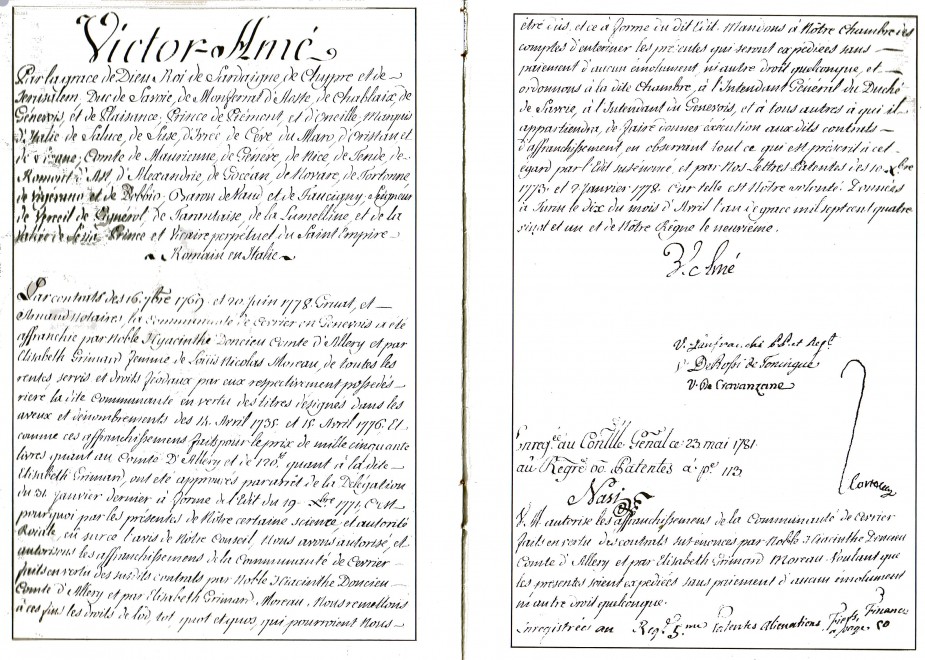 Victor-Amé
Par la grace de Dieu Roi de Sardaigne, de Chypre et de
Jerusalem, Duc de Savoie, de Monferrat d'Aoste, de Chablaix, de
Genevois, et de Plaisance; Prince de Piémont, et d'Oneille, Marquis
d'Italie de Saluce, de Suse, d'Ivrée, de Ceve du Maro, d'Oristan et
de; Comte de Maurienne, de Genéve, de Nice, de Tende, de
Romont, d'Ast, d'Alexandrie, de Gocéan, de Novare, de Tortonne
de vigevano et de Bobbio; Baron de Vaud et de Faucigny, Seigneur
de Verceil de Pignerol, de Tarantaise, de la Lumelline, et de la
Vallée de Sesia Prince et Vicaire perpétuel du Saint Empire
Romain en Italie
Par contrats des 16. 7bre 1769. et 20 juin 1778. Gruat, et
Arnaud notaires, la communauté de Cervier en Genevois a été
affranchie par Noble Hyacinthe Doncieu Comte d'Allery et par
Elisabeth Grimard femme de Louis Nicolas Moreau, de toutes les
rentes, servis et droits féodaux par eux respectivement possedés
riere la dite Communauté en vertu des titres designés dans les
aveux et dénombrements des 14 Avril 1735. et 15 Avril 1776. Et
comme ces affranchissemens faits pour le prix de mille cinquante
livres quant au Comte D'Allery et de 120# quant à la dite
Elisabeth Grimard, ont été approuvés par arrêt de la Délégation
du 31 janvier dernier à forme de l'Edit du 19. Xbre 1771, C'est
pourquoi par les présentes de Nôtre certaine science, et autorité
Roiale, eu sur ce l'avis de Notre Conseil Nous avons autorisé, et
autorisons les affranchissemens de la Communauté de Cervier
faits en vertu des susdits contrats par Noble Hiacinthe Doncieu
Comte d'Allery et par Elisabeth Grimard Moreau. Nous remettons
à ces fins les droits de lod, tot, quot et quos, qui pourroient Nous
être dûs, et ce à forme du dit Edit. Mandons à Nôtre Chambre des
comptes d'enteriner les présentes qui seront expédiées sans
paiement d'aucun émolument ni autre droit quelconque, et
ordonnons à la dite Chambre, à l'Intendant Général du Duché
de Savoie, à l'Intendant du Genevois, et à tous autres à qui il
appartiendra, de faire donner exécution aux dits contrats
d'affranchissement en observant tout ce qui est prescrit à cet
égard par l'Edit susénoncé, et par Nos Lettres Patentes des 10. Xbre
1773. et 2 janvier 1778. Car telle est Nôtre volonté. Données
à Turin le dix du mois d'Avril l'an de grace mil sept cent quatre
vingt et un et de Nôtre Règne le neuvième.
V.r Amé
V. De Rossi de Tonengue
V. De Cravanzane
Enreg.ée au Conlle Genal ce 23 mai 1781.
au Regre 00. Patentes à pe. 113.
Nasi
V. M. autorise les affranchissemens de la Communauté de Cervier
faits en vertu des contrats susénoncés par Noble Hiacinthe Doncieu
Comte d'Allery et par Elisabeth Grimard Moreau. Voulant que
les présentes soient expédiées sans paiement d'aucun émolument
ni autre droit quelconque.
Enregistrées au Reg.e 5.me Patentes Alienations, Fiefs, Finances
à page 50